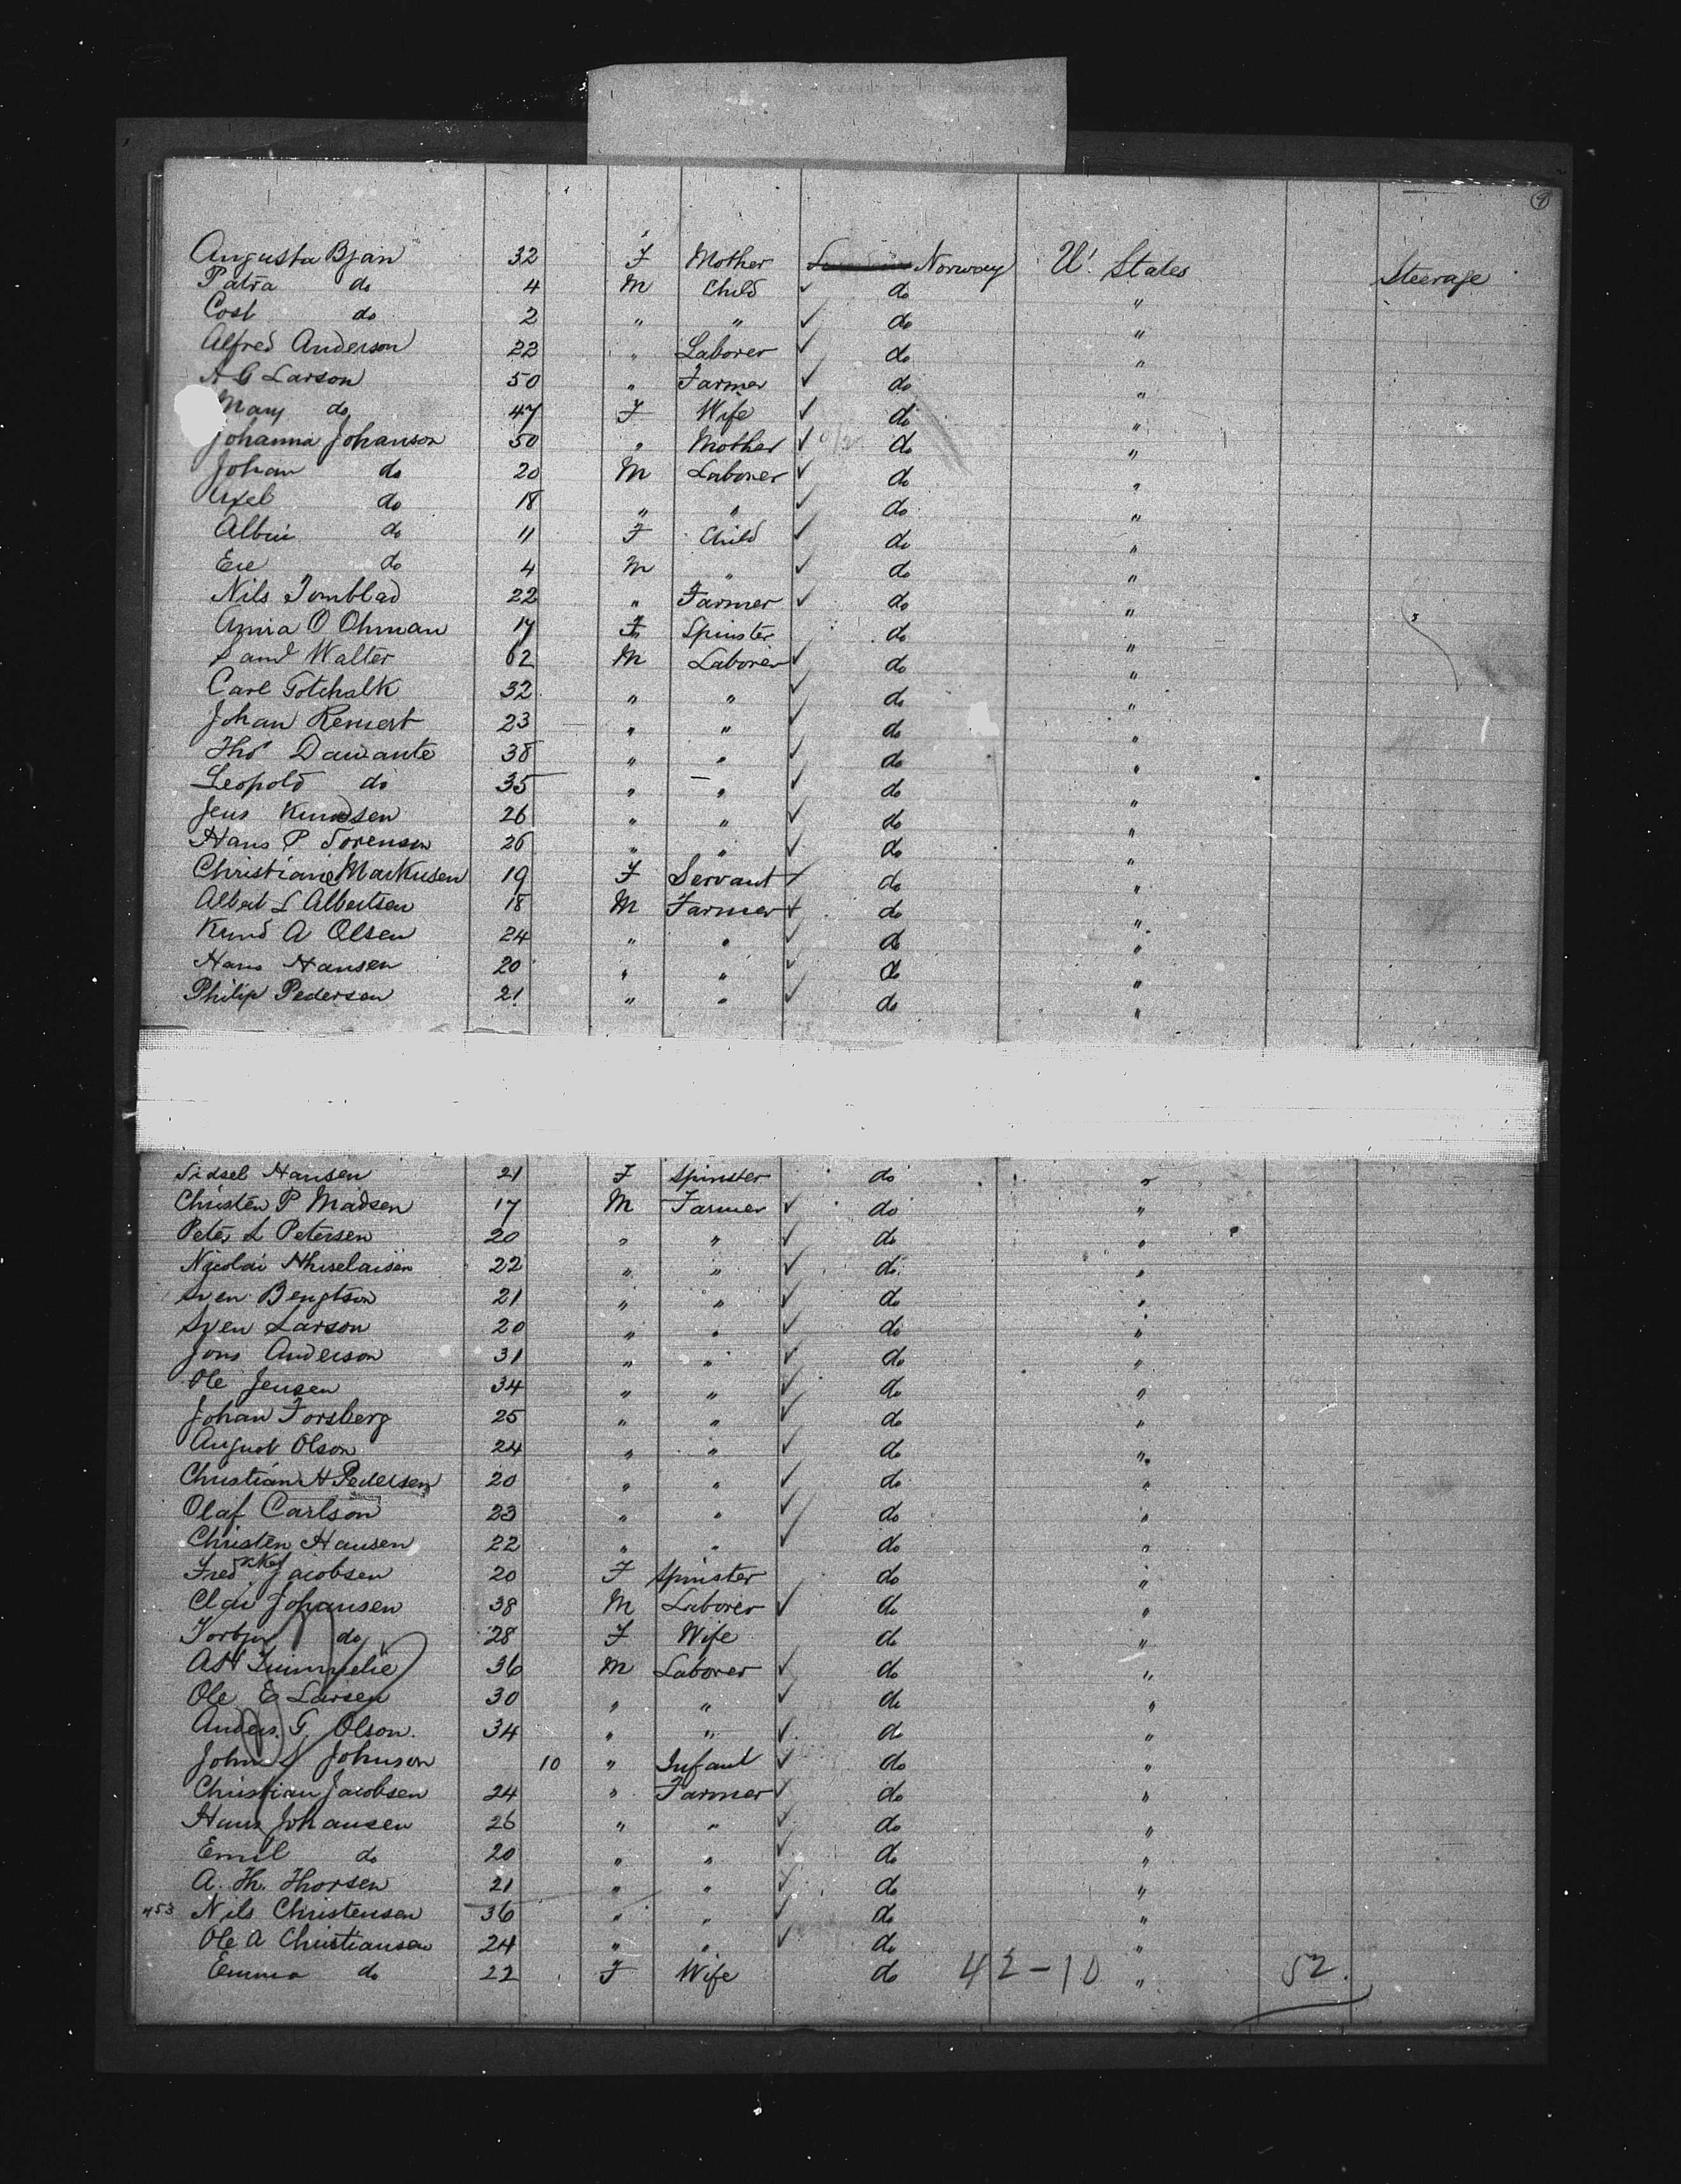 9
Augusta Bjan 32 F Mother Norway U. States Steerage
Patra do 4 M Child ✓ do "
Cost do 2 " " ✓ do "
Alfred Anderson 22 " Laborer ✓ do "
A G Larson 50 " Farmer ✓ do "
Mary do 47 F Wife ✓ do "
Johanna Johanson 50 " Mother ✓ do "
Johan do 20 M Laborer ✓ do "
Axel do 18 " " ✓ do "
Albin do 11 F Child ✓ do "
do 4 M " ✓ do "
Nils Tomblad 22 " Farmer ✓ do "
Anna O Ohman 17 F Spinster do "
Saml Walter 62 M Laborer ✓ do "
Carl Gotchalk 32 " " ✓ do "
Johan Remert 23 " " ✓ do "
Thos Dawante 38 " " ✓ do "
Leopold do 35 " " ✓ do "
Jens Knudsen 26 " " ✓ do "
Hans P Sorensen 26 " " ✓ do "
Christiane Markusen 19 F Servant ✓ do "
Albert L Albertsen 18 M Farmer ✓ do "
Knud A Olsen 24 " " ✓ do "
Hans Hansen 20 " " ✓ do "
Philip Pedersen 21 " " ✓ do "
Sidsel Hansen 21 F Spinster do "
Christen P Madsen 17 M Farmer ✓ do "
Peter L Petersen 20 " " ✓ do "
Nicolai 22 " " ✓ do "
Sven Bengtson 21 " " ✓ do "
Sven Larson 20 " " ✓ do "
Jons Anderson 31 " " ✓ do "
Ole Jensen 34 " " ✓ do "
Johan Forsberg 25 " " ✓ do "
August Olson 24 " " ✓ do "
Christian H Pedersen 20 " " ✓ do "
Olaf Carlson 23 " " ✓ do "
Christen Hansen 22 " " ✓ do "
Fredrikke Jacobsen 20 F Spinster do "
Johansen 38 M Laborer ✓ do "
Torbjor do 28 F Wife do "
36 M Laborer ✓ do "
Ole E Larsen 30 " " ✓ do "
Anders G. Olson 34 " " ✓ do "
John S Johnson 10 " Infant ✓ do "
Christian Jacobsen 24 " Farmer ✓ do "
Hans Johansen 26 " " ✓ do "
Emil do 20 " " ✓ do "
A. Th. Thorsen 21 " " ✓ do "
453 Nils Christensen 36 " " ✓ do "
Ole A Christiansen 24 " " ✓ do "
Emma do 22 F Wife do 42-10 " 52.